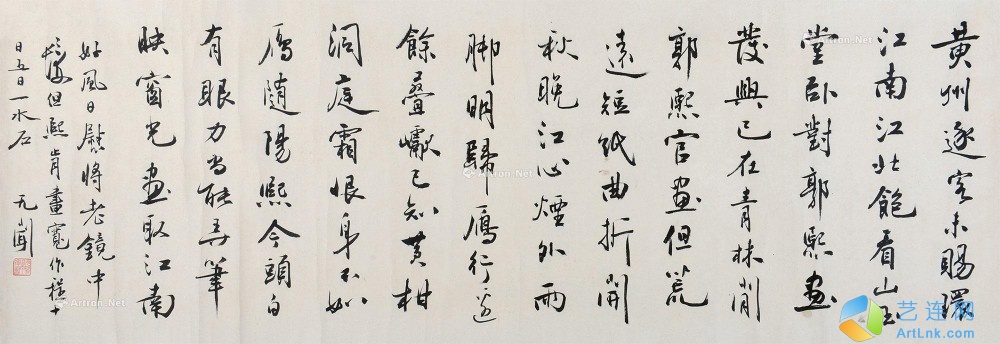 黃州逐客未賜環
江南江北飽看山玉
堂臥對郭熙畫
發興已在青林間
郭熙官畫但荒
遠短紙曲折開
秋晚江心煙外雨
脚明歸鴈行邊
餘疊巘已知黃柑
洞庭霜恨身不如
鴈隨陽熙今頭白
有眼力尚能弄筆
映窗光畫取江南
好風日慰將老鏡中
髮但熙肯畫寬作程十
日五日一水石
无聞
Artron.Net
Artron.Net
Artron.Net
Artron.Net
艺连网
ArtLnk.com